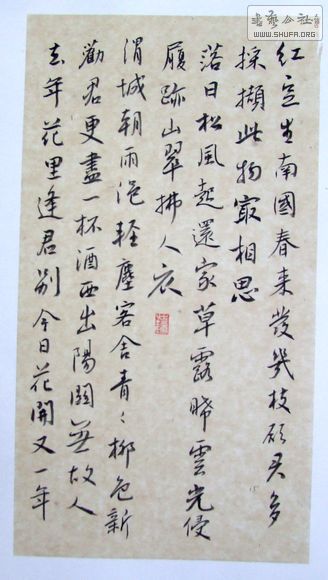 红豆生南國春来發幾枝願君多
採擷此物最相思
落日松風起還家草露晞雲光侵
履跡山翠拂人衣
渭城朝雨浥輕塵客舍青〻柳色新
勸君更盡一杯酒西出陽關無故人
去年花里逢君别今日花開又一年
書藝公社
WWW.SHUFA.ORG